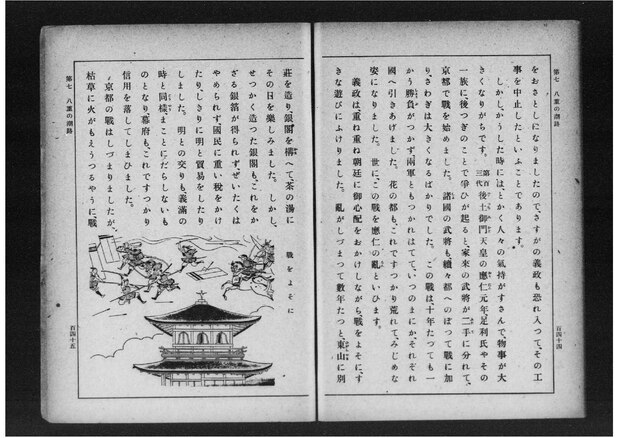 第七 八重の潮路
をおさとしになりましたので、さすがの義政も恐れ入つて、その工
事を中止したといふことであります。
しかし、かうした時には、とかく人々の氣持がすさんで、物事が大
きくなりがちです。第百三代後土御門天皇の應仁元年、足利氏やその
一族に後つぎのことで爭ひが起ると、家來の武將が二手に分れて、
京都で戰を始めました。諸國の武將も、續々都へのぼつて戰に加
り、さわぎは大きくなるばかりでした。この戰は、十年たつても一
かう勝負がつかず、兩軍ともつかれはてて、いつのまにか、それぞれ
國へ引きあげました。花の都も、これですつかり荒れて、みじめな
姿になりました。世に、この戰を應仁の亂といひます。
義政は、重ね重ね朝廷に御心配をおかけしながら、戰をよそに、す
きな遊びにふけりました。亂がしづまつて數年たつと、東山に別
百四十四
莊を造り、銀閣を構へて、茶の湯に
その日を樂しみました。しかし、
せつかく造つた銀閣も、これをか
ざる銀箔が得られず、ぜいたくは
やめられず、國民に重い税をかけ
たり、しきりに明と貿易をしたり
しました。明との交りも、義滿の
時と同樣、まことにだらしないも
のとなり、幕府も、これですつかり
信用を落してしまひました。
京都の戰はしづまりましたが、
枯草に火がもえうつるやうに、戰
戰をよそに
第七 八重の潮路
百四十五